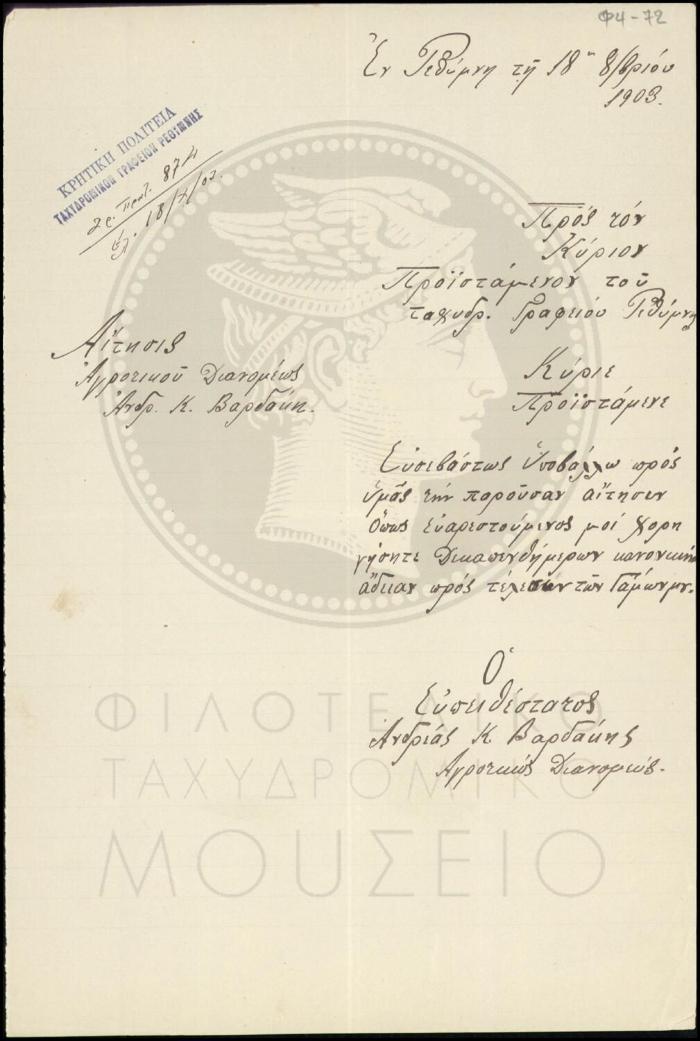 Φ4-72
Ἐν Ρεθύμνῃ τῇ 18ῃ 8/βρίου
1903.
ΚΡΗΤΙΚΗ ΠΟΛΙΤΕΙΑ
ΤΑΧΥΔΡΟΜΙΚΟΝ ΓΡΑΦΕΙΟΝ ΡΕΘΥΜΝΗΣ
Πρὸς τὸν
Κύριον
Προϊστάμενον τοῦ
ταχυδρ. Γραφείου Ρεθύμνης
Αἴτησις
Ἀγροτικοῦ Διανομέως
Ἀνδρ. Κ. Βαρδάκη.
Κύριε
Προϊστάμενε
Εὐσεβάστως Ὑποβάλλω πρὸς
ὑμᾶς τὴν παροῦσαν αἴτησιν
Ὅπως εὐαρεστούμενος μοὶ χορη
γήσητε Δεκαπενθήμερον κανονικὴν
ἄδειαν πρὸς τέλεσιν τῶν Γάμων μου.
Ὁ
Εὐπειθέστατος
Ἀνδρέας Κ Βαρδάκης
Ἀγροτικὸς Διανομεύς.
ΦΙΛΟΤΕΛΙΚΟ
ΤΑΧΥΔΡΟΜΙΚΟ
ΜΟΥΣΕΙΟ